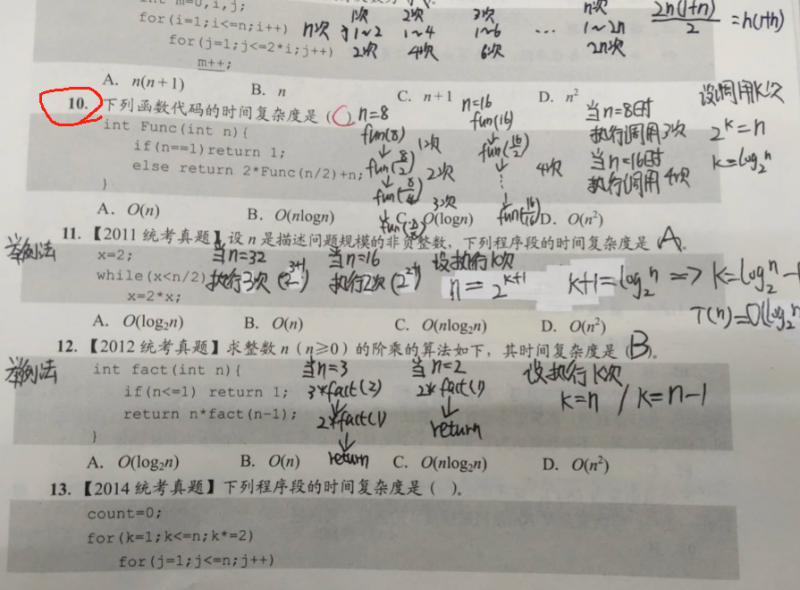 int m=0,i,j;
for(i=1;i<=n;i++) n次 1次 2次 3次 n次
1~2 1~4 1~6 … 1~2n
for(j=1;j<=2*i;j++) 2次 4次 6次 2n次
2n(1+n)/2 = n(1+n)
m++;
A. n(n+1) B. n C. n+1 D. n²
10. 下列函数代码的时间复杂度是 (C)
int Func(int n){
if(n==1)return 1;
else return 2*Func(n/2)+n;
}
n=8
fun(8)
↓ 1次
fun(8/2)
↓ 2次
fun(8/4)
↓ 3次
n=16
fun(16)
↓
fun(16/2)
↓
⋮ 4次
↓
当n=8时
执行调用3次
当n=16时
执行调用4次
设调用K次
2^k=n
k=log₂n
A. O(n) B. O(nlogn) C. O(logn) D. O(n²)
11. 【2011 统考真题】设 n 是描述问题规模的非负整数，下列程序段的时间复杂度是 A。
举例法
x=2; 当n=32 当n=16 设执行k次
while(x<n/2) 执行3次(2^3+1) 执行2次(2^2+1) n=2^k+1 k+1=log₂n => k=log₂n-1
x=2*x; T(n)=O(log₂n
A. O(log₂n) B. O(n) C. O(nlog₂n) D. O(n²)
12. 【2012 统考真题】求整数 n (n≥0) 的阶乘的算法如下，其时间复杂度是 (B)。
举例法
int fact(int n){ 当n=3 当n=2 设执行k次
if(n<=1) return 1; 3*fact(2) 2*fact(1) k=n / k=n-1
return n*fact(n-1); 2*fact(1) return
}
return
A. O(log₂n) B. O(n) C. O(nlog₂n) D. O(n²)
13. 【2014 统考真题】下列程序段的时间复杂度是 ( )。
count=0;
for(k=1;k<=n;k*=2)
for(j=1;j<=n;j++)